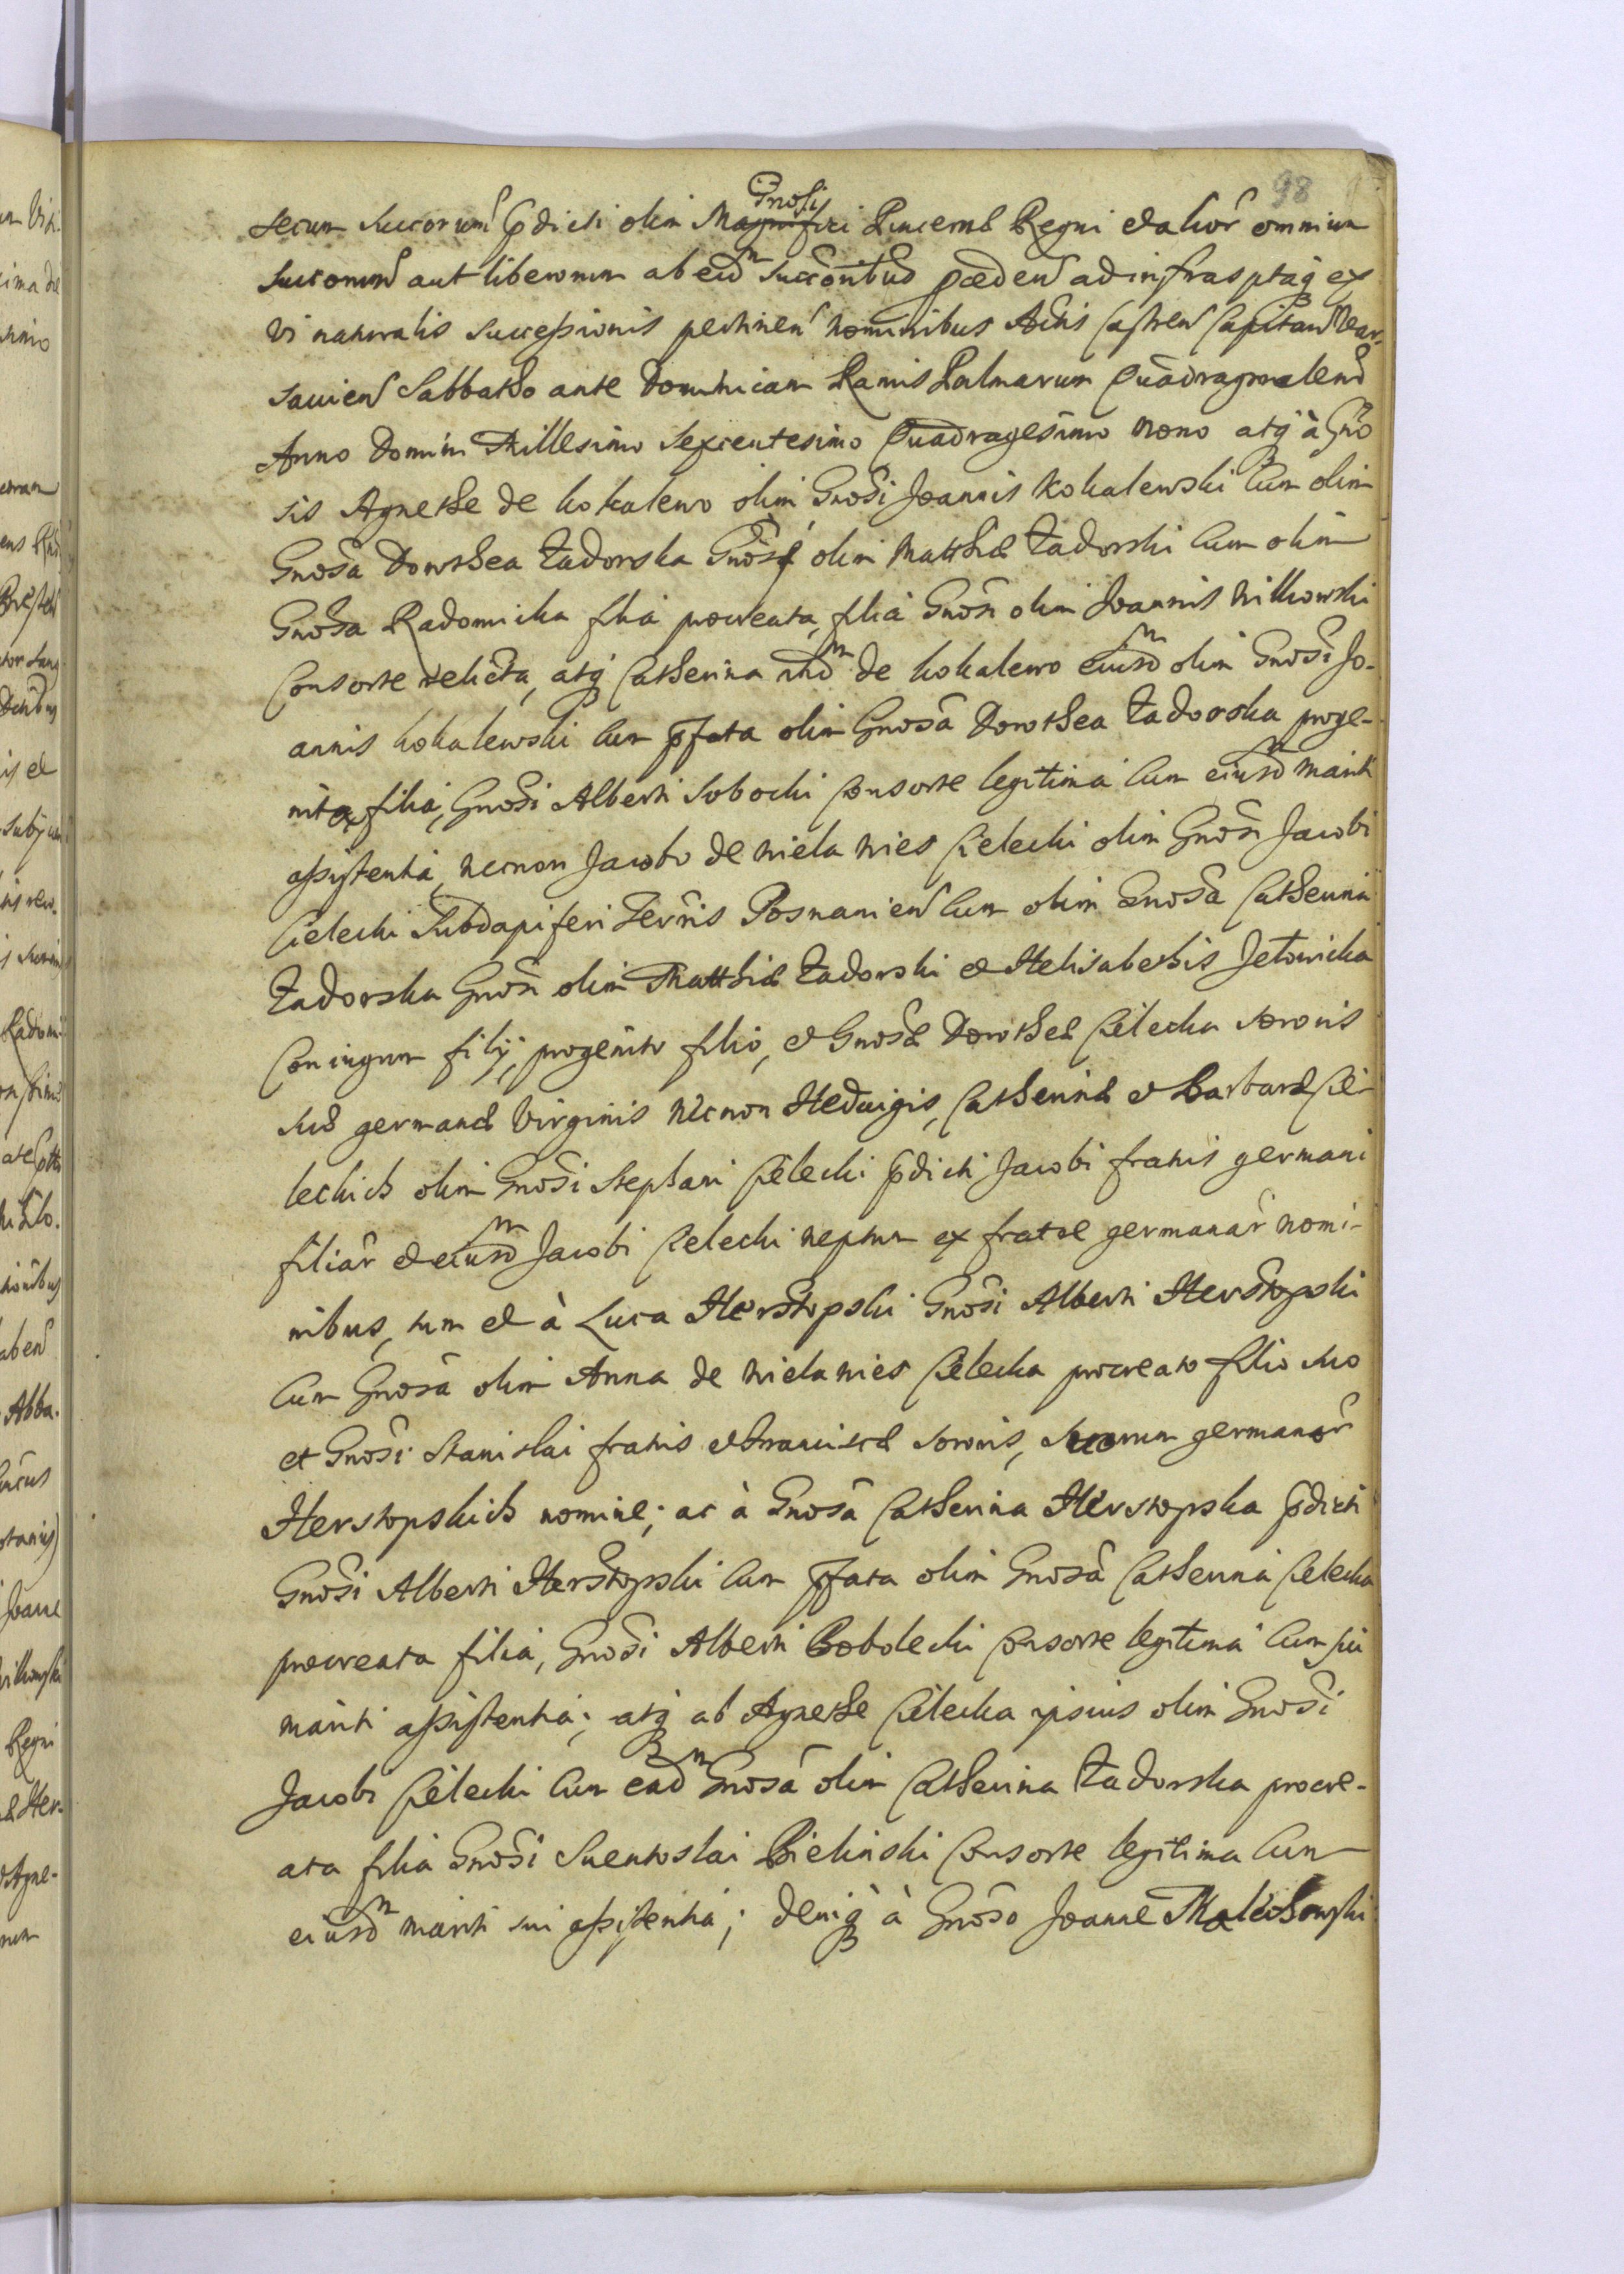 98
Gnosi
secum succorum pdicti olim Magnifici Pincernæ Regni et alior omnium
succorum aut liberorum ab eisdm succoribus pædend ad infrasptaq ex
vi naturalis successionis pertinen nominibus Actis Castren Capitan War-
sauien Sabbatho ante Dominicam Ramis Palmarum Quadragmalem
Anno Domini Millesimo Sexcentesimo Quadragesimo Nono atq à Gno
sis Agnethe de Kokalewo olim Gnosi Joannis Kokalewski cum olim
Gnosa Dorothea Zadorska Gnosi olim Matthiæ Zadorski cum olim
Gnosa Radomicka filia procreata, filià Gnosi olim Joannis Wilkowski
consorte relicta, atq Catherina itidm de Kokalewo eiusdm olim Gnosi Jo-
annis Kokalewski cum pfata olim Gnosa Dorothea Zadorska proge-
nita filià, Gnosi Alberti Sobocki consorte legitima cum eiusdm mariti
assistentia, necnon Jacobo de Wiela Wies Cielecki olim Gnosi Jacobi
Cielecki Subdapiferi Terris Posnanien cum olim Gnosa Catherina
Zadorska Gnosi olim Matthiæ Zadorski et Helisabethis Jetowicka
coniugum filij, progenito filio, et Gnosæ Dorotheæ Cielecka sororis
suæ germanæ virginis necnon Hedwigis, Catherinæ et Barbaræ Cie-
leckich olim Gnosi Stephani Cielecki pdicti Jacobi fratris germani
filiar et eiusdm Jacobi Cielecki neptum ex fratre germanar nomi-
nibus, tum et à Luca Herstopski Gnosi Alberti Herstopski
cum Gnosa olim Anna de Wiela Wies Cielecka procreato filio suo
et Gnosi Stanislai fratris et Franciscæ sororis, suorum germanor
Herstopskich nomine; ac à Gnosa Catherina Herstopska pdicti
Gnosi Alberti Herstopski cum pfata olim Gnosa Catherina Cielecka
procreata filià, Gnosi Alberti Bobolecki consorte legitima cum sui
mariti assistentia; atq ab Agnethe Cielecka ipsius olim Gnosi
Jacobi Cielecki cum eadm Gnosa olim Catherina Zadorska procre-
ata filia Gnosi Suentoslai Bielinski consorte legitima cum
eiusdm mariti sui assistentia; deniq à Gnoso Joanne Malechowski